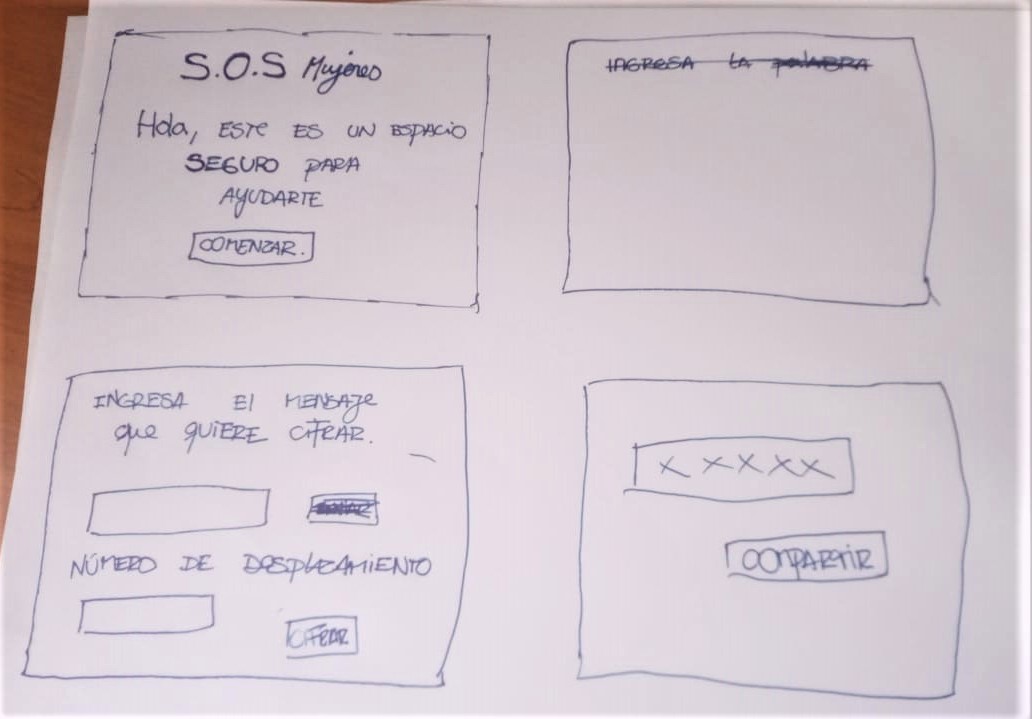 S.O.S Mujeres
Hola, ESTE ES UN ESPACIO
SEGURO PARA
AYUDARTE
COMENZAR.
INGRESA LA PALABRA
INGRESA El MENSAJE
que QUIERE CIFRAR.
NÚMERO DE DESPLAZAMIENTO
CIFRAR
X XXXX
COMPARTIR